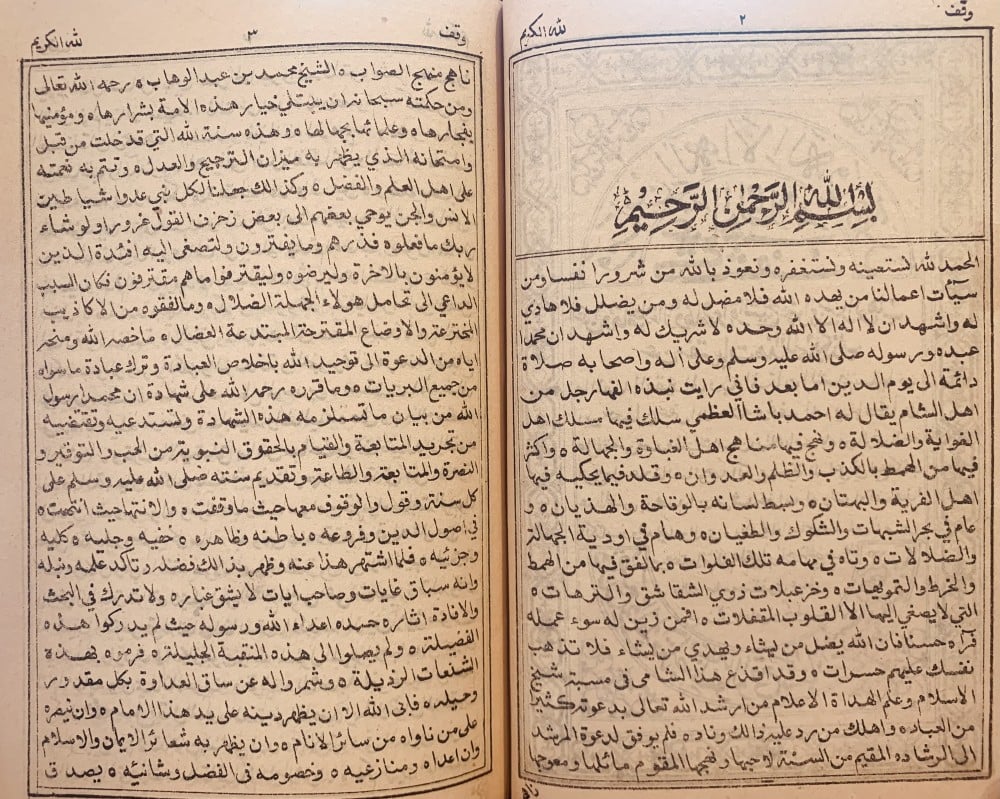 وقف
٢
لله الكريم
بسم الله الرحمن الرحيم
الحمد لله نستعينه ونستغفره ونعوذ بالله من شرور انفسنا ومن
سيأت اعمالنا من يهده الله فلا مضل له ومن يضلل فلا هادي
له واشهد ان لا اله الا الله وحده لا شريك له واشهد ان محمدا
عبده ورسوله صلى الله عليه وسلم وعلى أله واصحابه صلاة
دائمة الى يوم الدين اما بعد فاني رايت نبذه الفها رجل من
اهل الشام يقال له احمد باشا العظمي سلك فيها مسلك اهل
الغواية والضلالة ه ونهج فيها مناهج اهل الغباوة والجهالة ه واكثر
فيها من الهمط بالكذب والظلم والعدوان ه وقلد فيما يحكيه فيها
اهل الفرية والبهتان ه وبسط لسانه بالوقاحة والهذيان ه و
عام في بحر الشبهات والشكوك والطغيان ه وهام في اودية الجهالة
والضلالات ه وتاه في مهامه تلك الفلوات ه بما لفق فيها من الهمط
والخرط والتمويهات ه وخزعبلات ذوي الشقاشق والترهات ه
التي لا يصغي اليها الا القلوب المقفلات ه افمن زين له سوء عمله
فرآه حسنا فان الله يضل من يشاء ويهدي من يشاء فلا تذهب
نفسك عليهم حسرات ه وقد اقذع هذا الشامى في مسبة شيخ
الاسلام وعلم الهداة الاعلام من ارشد الله تعالى بدعوته كثيرا
من العباد ه واهلك من رد عليه ذالك وناد ه فلم يوفق لدعوة المرشد
الى الرشاد ه المقيم من السنة لاحبها ونهجها المقوم مائلها ومعوجها
ناهج
وقف لله
٣
لله الكريم
ناهج منهج الصواب ه الشيخ محمد بن عبد الوهاب ه رحمه الله تعالى
ومن حكمته سبحانه ان يبتلي خيار هذه الامة بشرارها ه ومؤمنيها
بفجارها ه وعلمائها بجهالها ه وهذه سنة الله التي قد خلت من قبل
وامتحانه الذي يظهر به ميزان الترجيح والعدل ه وتتم به نعمته
على اهل العلم والفضل ه وكذالك جعلنا لكل نبي عدوا شياطين
الانس والجن يوحي بعضهم الى بعض زخرف القول غرورا ولو شاء
ربك ما فعلوه فذرهم وما يفترون ولتصغى اليه افئدة الذين
لا يؤمنون بالاخرة وليرضوه وليقترفوا ما هم مقترفون فكان السبب
الداعي الى تحامل هولاء الجهلة الضلال ه وما لفقوه من الاكاذيب
المخترعة والاوضاع المقترحة المبتدعة العضال ه ما خصه الله ومنحه
اياه من الدعوة الى توحيد الله باخلاص العبادة وترك عبادة ما سواه
من جميع البريات ه وما قرره رحمه الله على شهادة ان محمدا رسول
الله من بيان ما تستلزمه هذه الشهادة وتستدعيه وتقتضيه
من تجريد المتابعة والقيام بالحقوق النبوية من الحب والتوقير و
النصرة والمتابعة والطاعة وتقديم سنته صلى الله عليه وسلم على
كل سنة وقول والوقوف معها حيث ما وقفت ه والانتهاء حيث انتهت ه
في اصول الدين وفروعه ه باطنه وظاهره ه خفيه وجليه ه كليه
وجزئيه ه فلما اشتهر هذا عنه وظهر بذالك فضله وتاكد علمه ونبله
وانه سباق غايات وصاحب ايات لا يشق غباره ولا تدرك في البحث
والافادة اثاره حسده اعداء الله ورسوله حيث لم يدركوا هذه
الفضيلة ه ولم يصلوا الى هذه المنقبة الجليلة ه فرموه بهذه
الشنعات الرذيلة ه وشمروا له عن ساق العداوة بكل مقدور
وحيله ه فابى الله الا ان يظهر دينه على يد هذا الامام ه وان ينصره
على من ناواه من سائر الانام ه وان يظهر به شعائر الايمان والاسلام
وان اعداه ومنازعيه ه وخصومه في الفضل وشانئيه ه يصدق